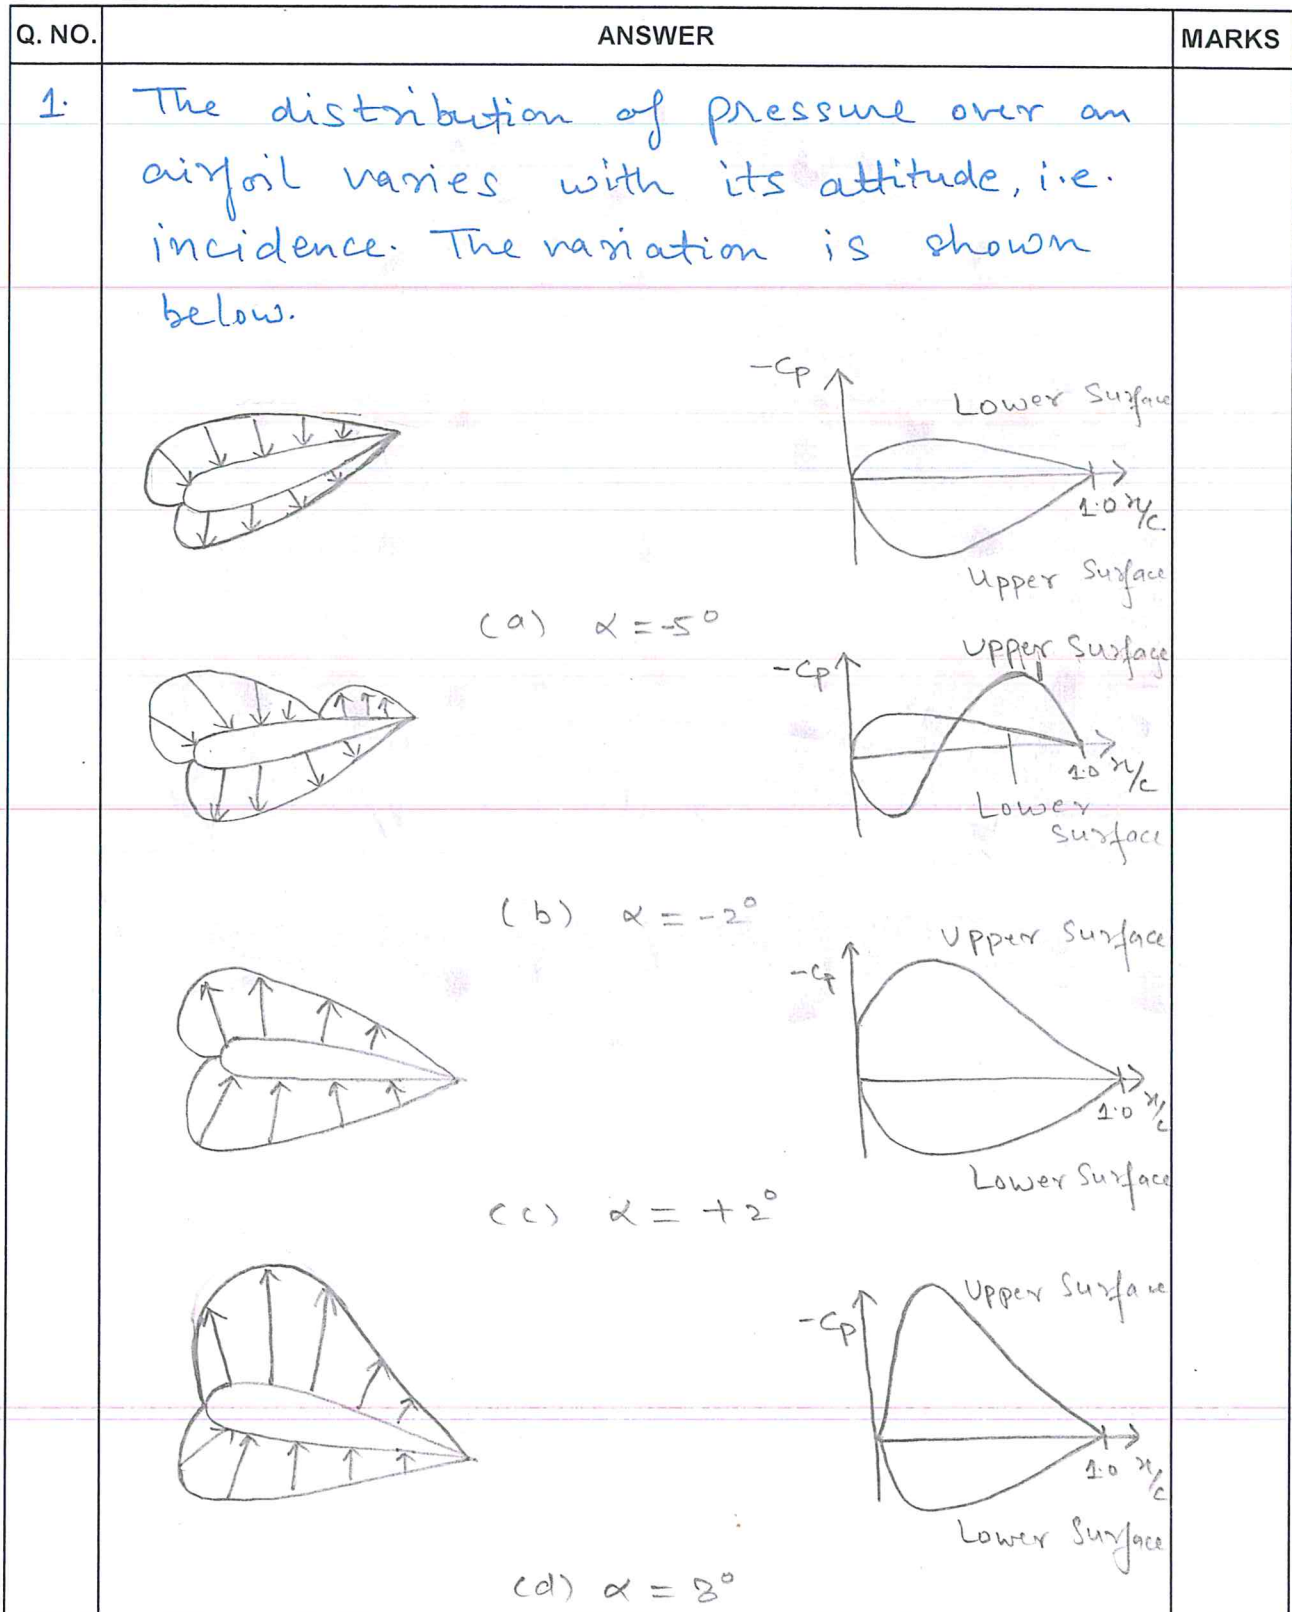 Q. NO. ANSWER MARKS
1. The distribution of pressure over an
airfoil varies with its attitude, i.e.
incidence. The variation is shown
below.
-Cp
Lower Surface
1.0 x/c
Upper Surface
(a) α = -5°
-Cp
Upper Surface
1.0 x/c
Lower
Surface
(b) α = -2°
-Cp
Upper Surface
1.0 x/c
Lower Surface
(c) α = +2°
-Cp
Upper Surface
1.0 x/c
Lower Surface
(d) α = 8°